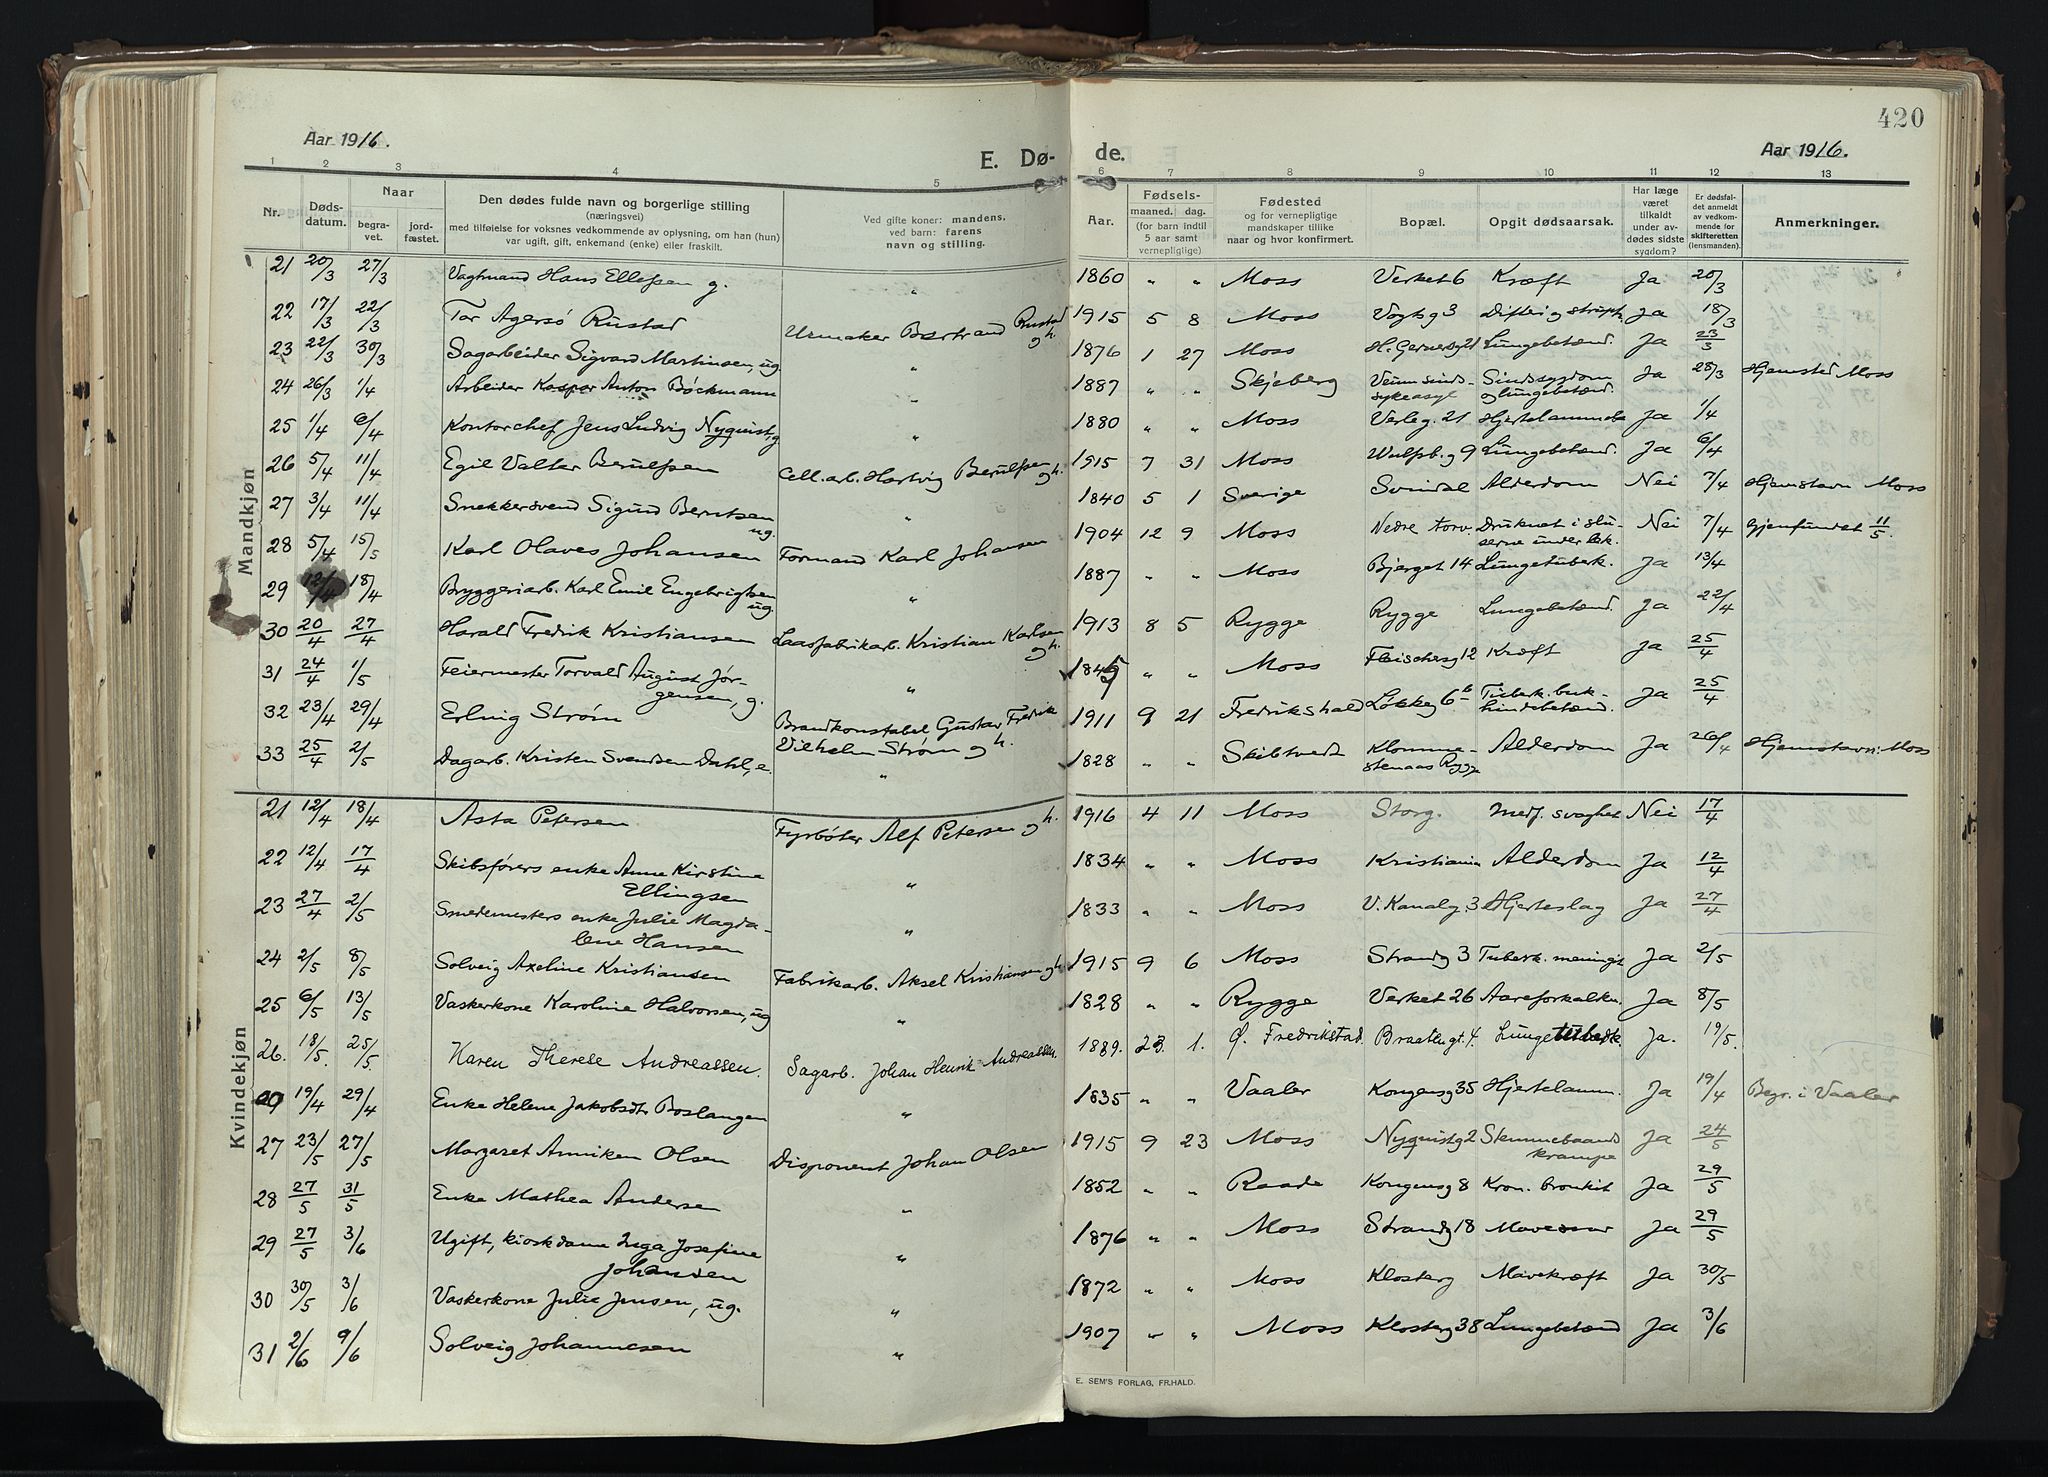 420
Aar 1916.
E. Dø-
de.
Aar 1916.
1 2 3 4 5 6 7 8 9 10 11 12 13
Nr.
Døds-
datum.
Naar
begra-
vet.
jord-
fæstet.
Den dødes fulde navn og borgerlige stilling
(næringsvei)
med tilføielse for voksnes vedkommende av oplysning, om han (hun)
var ugift, gift, enkemand (enke) eller fraskilt.
Ved gifte koner: mandens,
ved barn: farens
navn og stilling.
Aar.
Fødsels-
maaned. dag.
(for barn indtil
5 aar samt
vernepligtige)
Fødested
og for vernepligtige
mandskaper tillike
naar og hvor konfirmert.
Bopæl.
Opgit dødsaarsak.
Har læge
været
tilkaldt
under av-
dødes sidste
sygdom?
Er dødsfal-
det anmeldt
av vedkom-
mende for
skifteretten
(lensmanden).
Anmerkninger.
Mandkjøn
21 20/3 27/3 Vagtmand Hans Ellefsen g. " 1860 " " Moss Verket 6 Kræft Ja 20/3
22 17/3 22/3 Tor Agersø Rustad Urmaker Bertrand Rustad g h. 1915 5 8 Moss Vogtsg 3 Difteri og Ja 18/3
23 22/3 30/3 Sagarbeider Sigvard Martinsen, ug. " 1876 1 27 Moss H. Gernersg 21 Lungebetænd. Ja 23/3
24 26/3 1/4 Arbeider Kasper Anton Bøckmann " 1887 " " Skjeberg Veum sinds-
sykeasyl Sindssygdom
og lungebetænd. Ja 28/3 Hjemsted Moss
25 1/4 6/4 Kontorchef Jens Ludvig Nyquist, g. " 1880 " " Moss Verleg. 21 Hjertelammelse Ja 1/4
26 5/4 11/4 Egil Valter Berulfsen Cell. arb. Hartvig Berulfsen g h. 1915 7 31 Moss Wulfsb. g 9 Lungebetænd. Ja 6/4
27 3/4 11/4 Snekkersvend Sigurd Berntsen ug. " 1840 5 1 Sverige Svindal Alderdom Nei 7/4 Hjemstavn Moss
28 5/4 15/5 Karl Olaves Johansen Formand Karl Johansen 1904 12 9 Moss Nedre torv Druknet i slu-
serne under lek. Nei 7/4 Gjenfundet 11/5
29 12/4 18/4 Bryggeriarb. Karl Emil Engebrigtsen ug. " 1887 " " Moss Bjerget 14 Lungetuberk. Ja 13/4
30 20/4 27/4 Harald Fredrik Kristiansen Laasfabrikarb. Kristian Karlsen g h. 1913 8 5 Rygge Rygge Lungebetænd. Ja 22/4
31 24/4 1/5 Feiermester Torvald August Jør-
gensen, g. " " " Moss Fleischersg 12 Kræft Ja 25/4
32 23/4 29/4 Erling Strøm Brandkonstabel Gustav Fredrik
Vilhelm Strøm g h. 1911 9 21 Fredrikshald Løkkeg 6 b Tuberk. buk-
hindebetænd. Ja 25/4
33 25/4 2/5 Dagarb. Kristen Svendsen Dahl, e. " 1828 " " Skibtvedt Klomme-
stenaas Rygge Alderdom Ja 26/4 Hjemstavn: Moss
Kvindekjøn
21 12/4 18/4 Asta Petersen Fyrbøter Alf Petersen g h. 1916 4 11 Moss Storg. Medf. svaghet Nei 17/4
22 12/4 17/4 Skibsførers enke Anne Kirstine
Ellingsen " 1834 " " Moss Kristiania Alderdom Ja 12/4
23 27/4 2/5 Smedemesters enke Julie Magda-
lene Hansen " 1833 " " Moss V. Kanalg. 3 Hjerteslag Ja 27/4
24 2/5 8/5 Solveig Axeline Kristiansen Fabrikarb. Aksel Kristiansen g h 1915 9 6 Moss Strandg 3 Tuberk. meningit Ja 2/5
25 6/5 13/5 Vaskerkone Karoline Halvorsen, ug " 1828 " " Rygge Verket 26 Aareforkalkn. Ja 8/5
26. 18/5 25/5 Karen Therese Andreassen. Sagarb. Johan Henrik Andreassen. 1889. 23. 1. Ø. Fredrikstad. Braatengt. 4. Lungetuberk. Ja. 19/5.
19/4 29/4 Enke Helene Jakobsdtr Boslangen " 1835 " " Vaaler Kongensg 35 Hjertelamm. Ja 19/4 Begr. i Vaaler
27 23/5 27/5 Margaret Anniken Olsen Disponent Johan Olsen 1915 9 23 Moss Nyquistg 2 Stemmebaands
krampe Ja 24/5
28 27/5 31/5 Enke Mathea Andersen " 1852 " " Raade Kongensg 8 Kron. bronkit Ja 29/5
29 27/5 3/6 Ugift, kioskdame Inga Josefine
Johansen " 1876 " " Moss Strandg 18 Mavesaar Ja 29/5
30 30/5 3/6 Vaskerkone Julie Jensen, ug. " 1872 " " Moss Klosterg Mavekræft Ja 30/5
31 2/6 9/6 Solveig Johannesen " 1907 " " Moss Klosterg 38 Lungebetænd Ja 3/6
E. SEM'S FORLAG, FR.HALD.